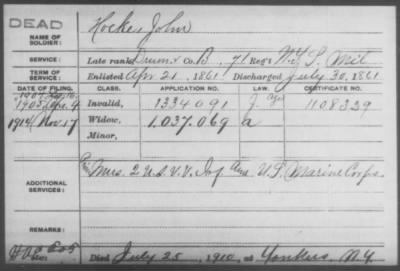 DEAD
NAME OF SOLDIER: Hocke, John
SERVICE: Late rank Drumr Co. B, 71 Reg't N.Y. S. Mil
TERM OF SERVICE: Enlisted Apr 21, 1861 Discharged July 30, 1861
DATE OF FILING. CLASS. APPLICATION NO. LAW. CERTIFICATE NO.
1905 Apr. 4 Invalid, 1334091 1108329
1910 Nov 17 Widow, 1.037.069 a
Minor,
ADDITIONAL SERVICES: Mus. 2 U.S.V.V. Inf also U.S. Marine Corps
REMARKS:
Died July 25, 1910, at Yonkers N.Y.